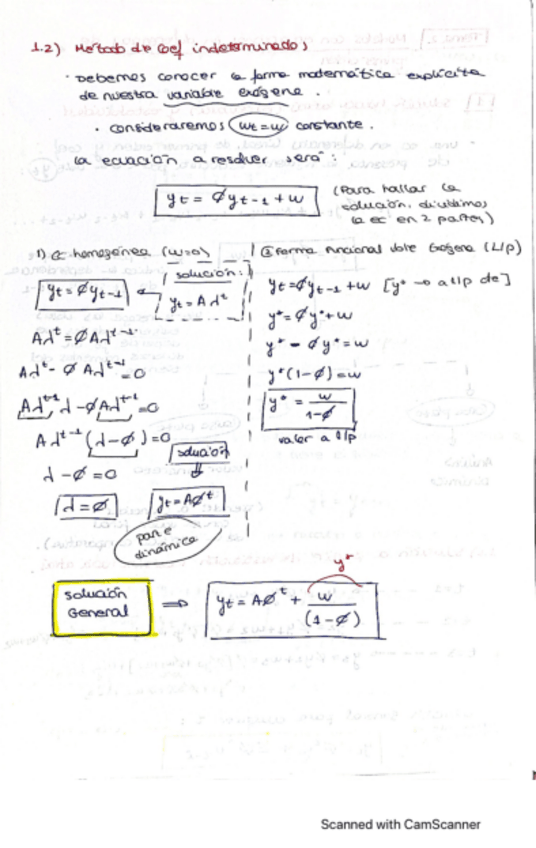 1.2) Método de coef indeterminados
· Debemos conocer la forma matemática explícita
de nuestra variable exógena.
· consideraremos wt=w constante.
la ecuación a resolver será:
yt = Øyt-1 + w
(Para hallar la
solución, dividimos
la ec en 2 partes)
1) Ec homogénea (w=0)
yt = Øyt-1
solución:
yt = Aλ^t
Aλ^t = ØAλ^t-1
Aλ^t - ØAλ^t-1 = 0
Aλ^t-1 λ - ØAλ^t-1 = 0
Aλ^t-1 (λ-Ø) = 0
λ - Ø = 0
λ = Ø
solución
yt = AØ^t
parte
dinámica
② forma funcional vble Exógena (L/p)
yt = Øyt-1 + w [y* → a l/p de]
y* = Øy* + w
y* - Øy* = w
y*(1-Ø) = w
y* = w / 1-Ø
valor a l/p
y*
solución
General
⇒ yt = AØ^t + w / (1-Ø)
Scanned with CamScanner